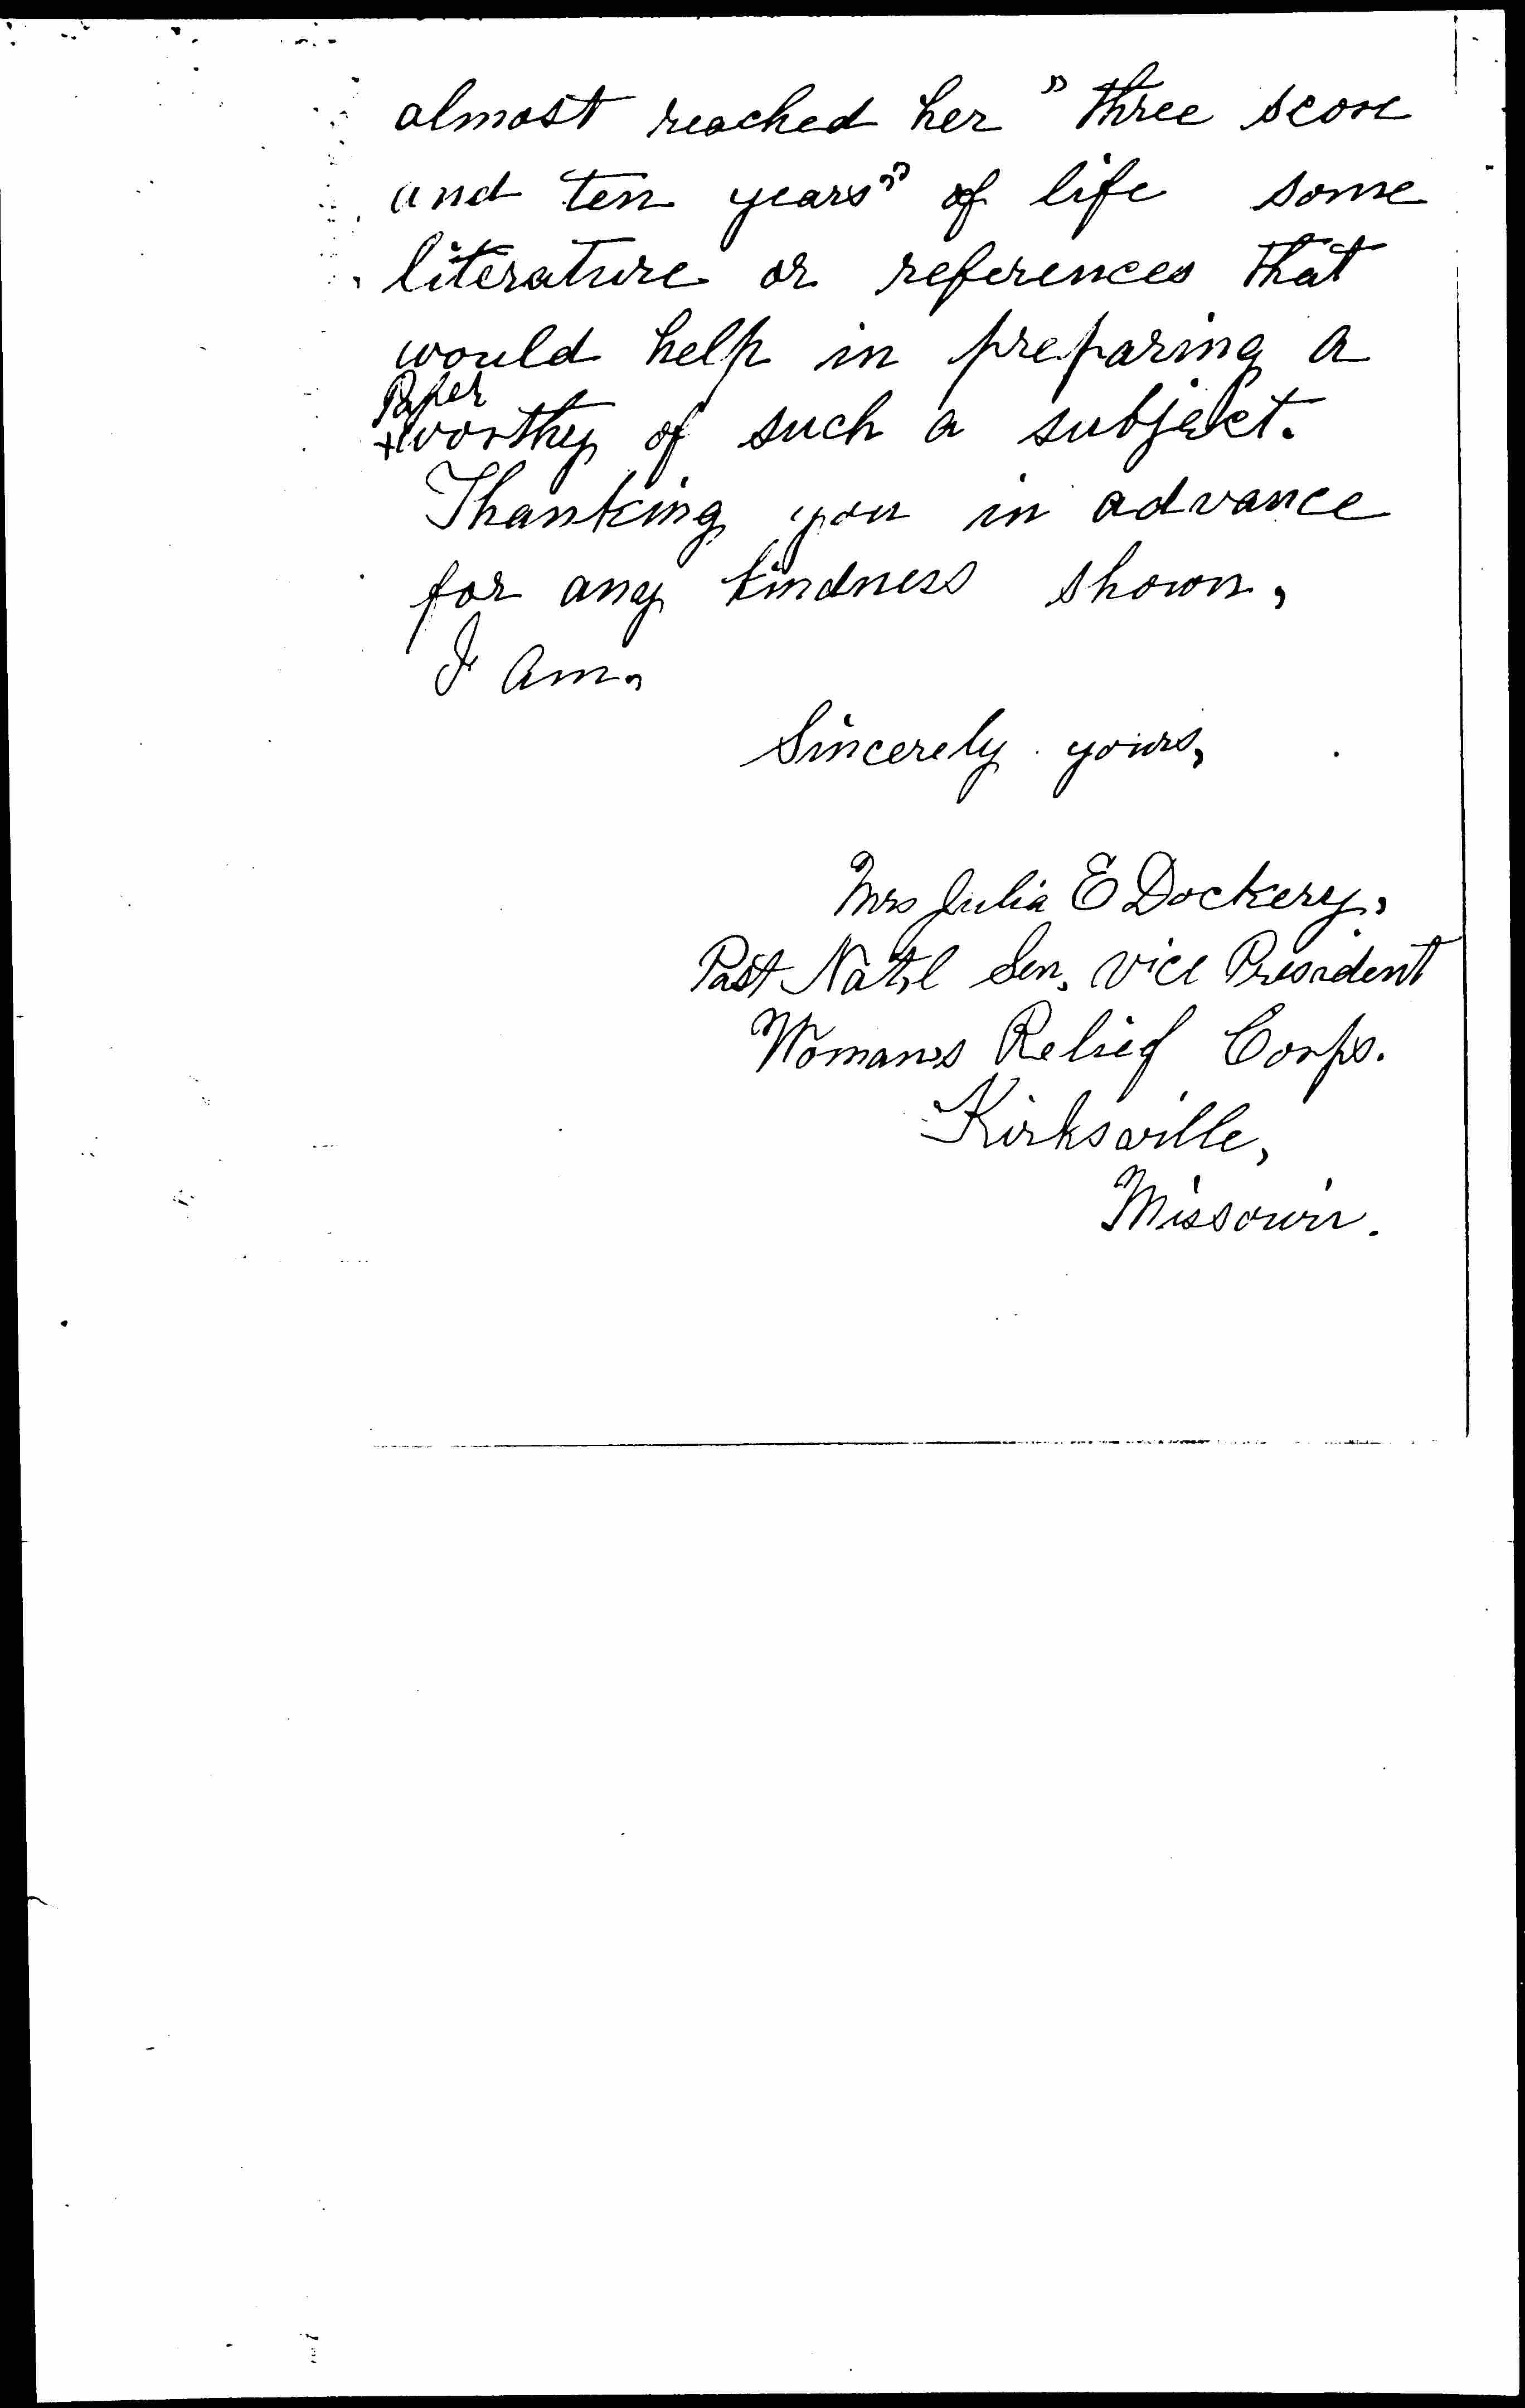 almost reached her "three score
and ten years" of life some
literature or references that
would help in preparing a
Paper
+worthy of such a subject.
Thanking you in advance
for any kindness shown,
I am,
Sincerely yours,
Mrs Julia E Dockery,
Past Nat'l Sen. Vice President
Woman's Relief Corps.
Kirksville,
Missouri.